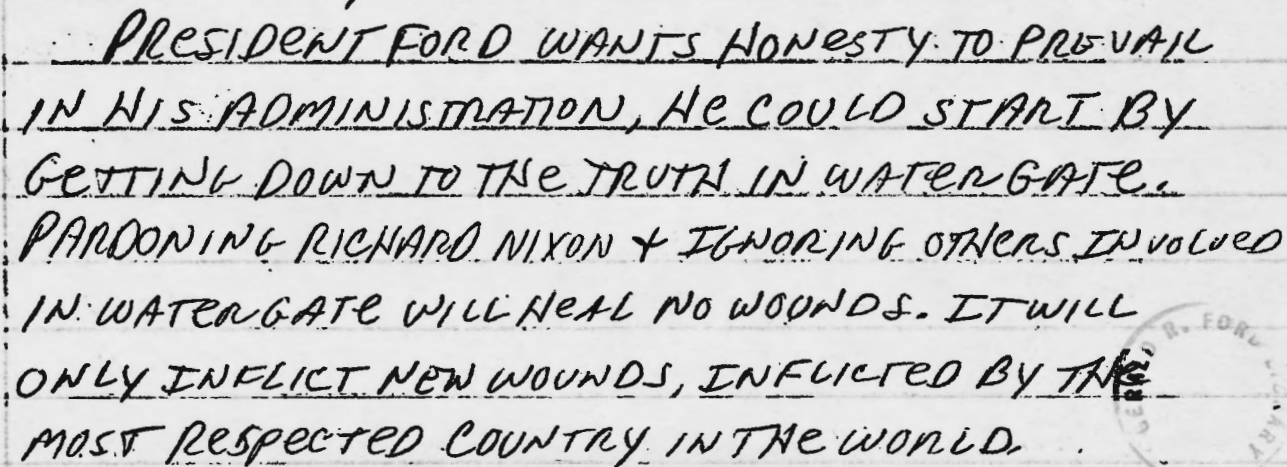 PRESIDENT FORD WANTS HONESTY TO PREVAIL
IN HIS ADMINISTRATION, HE COULD START BY
GETTING DOWN TO THE TRUTH IN WATERGATE.
PARDONING RICHARD NIXON + IGNORING OTHERS INVOLVED
IN WATERGATE WILL HEAL NO WOUNDS. IT WILL
ONLY INFLICT NEW WOUNDS, INFLICTED BY THE
MOST RESPECTED COUNTRY IN THE WORLD.
R. FORD